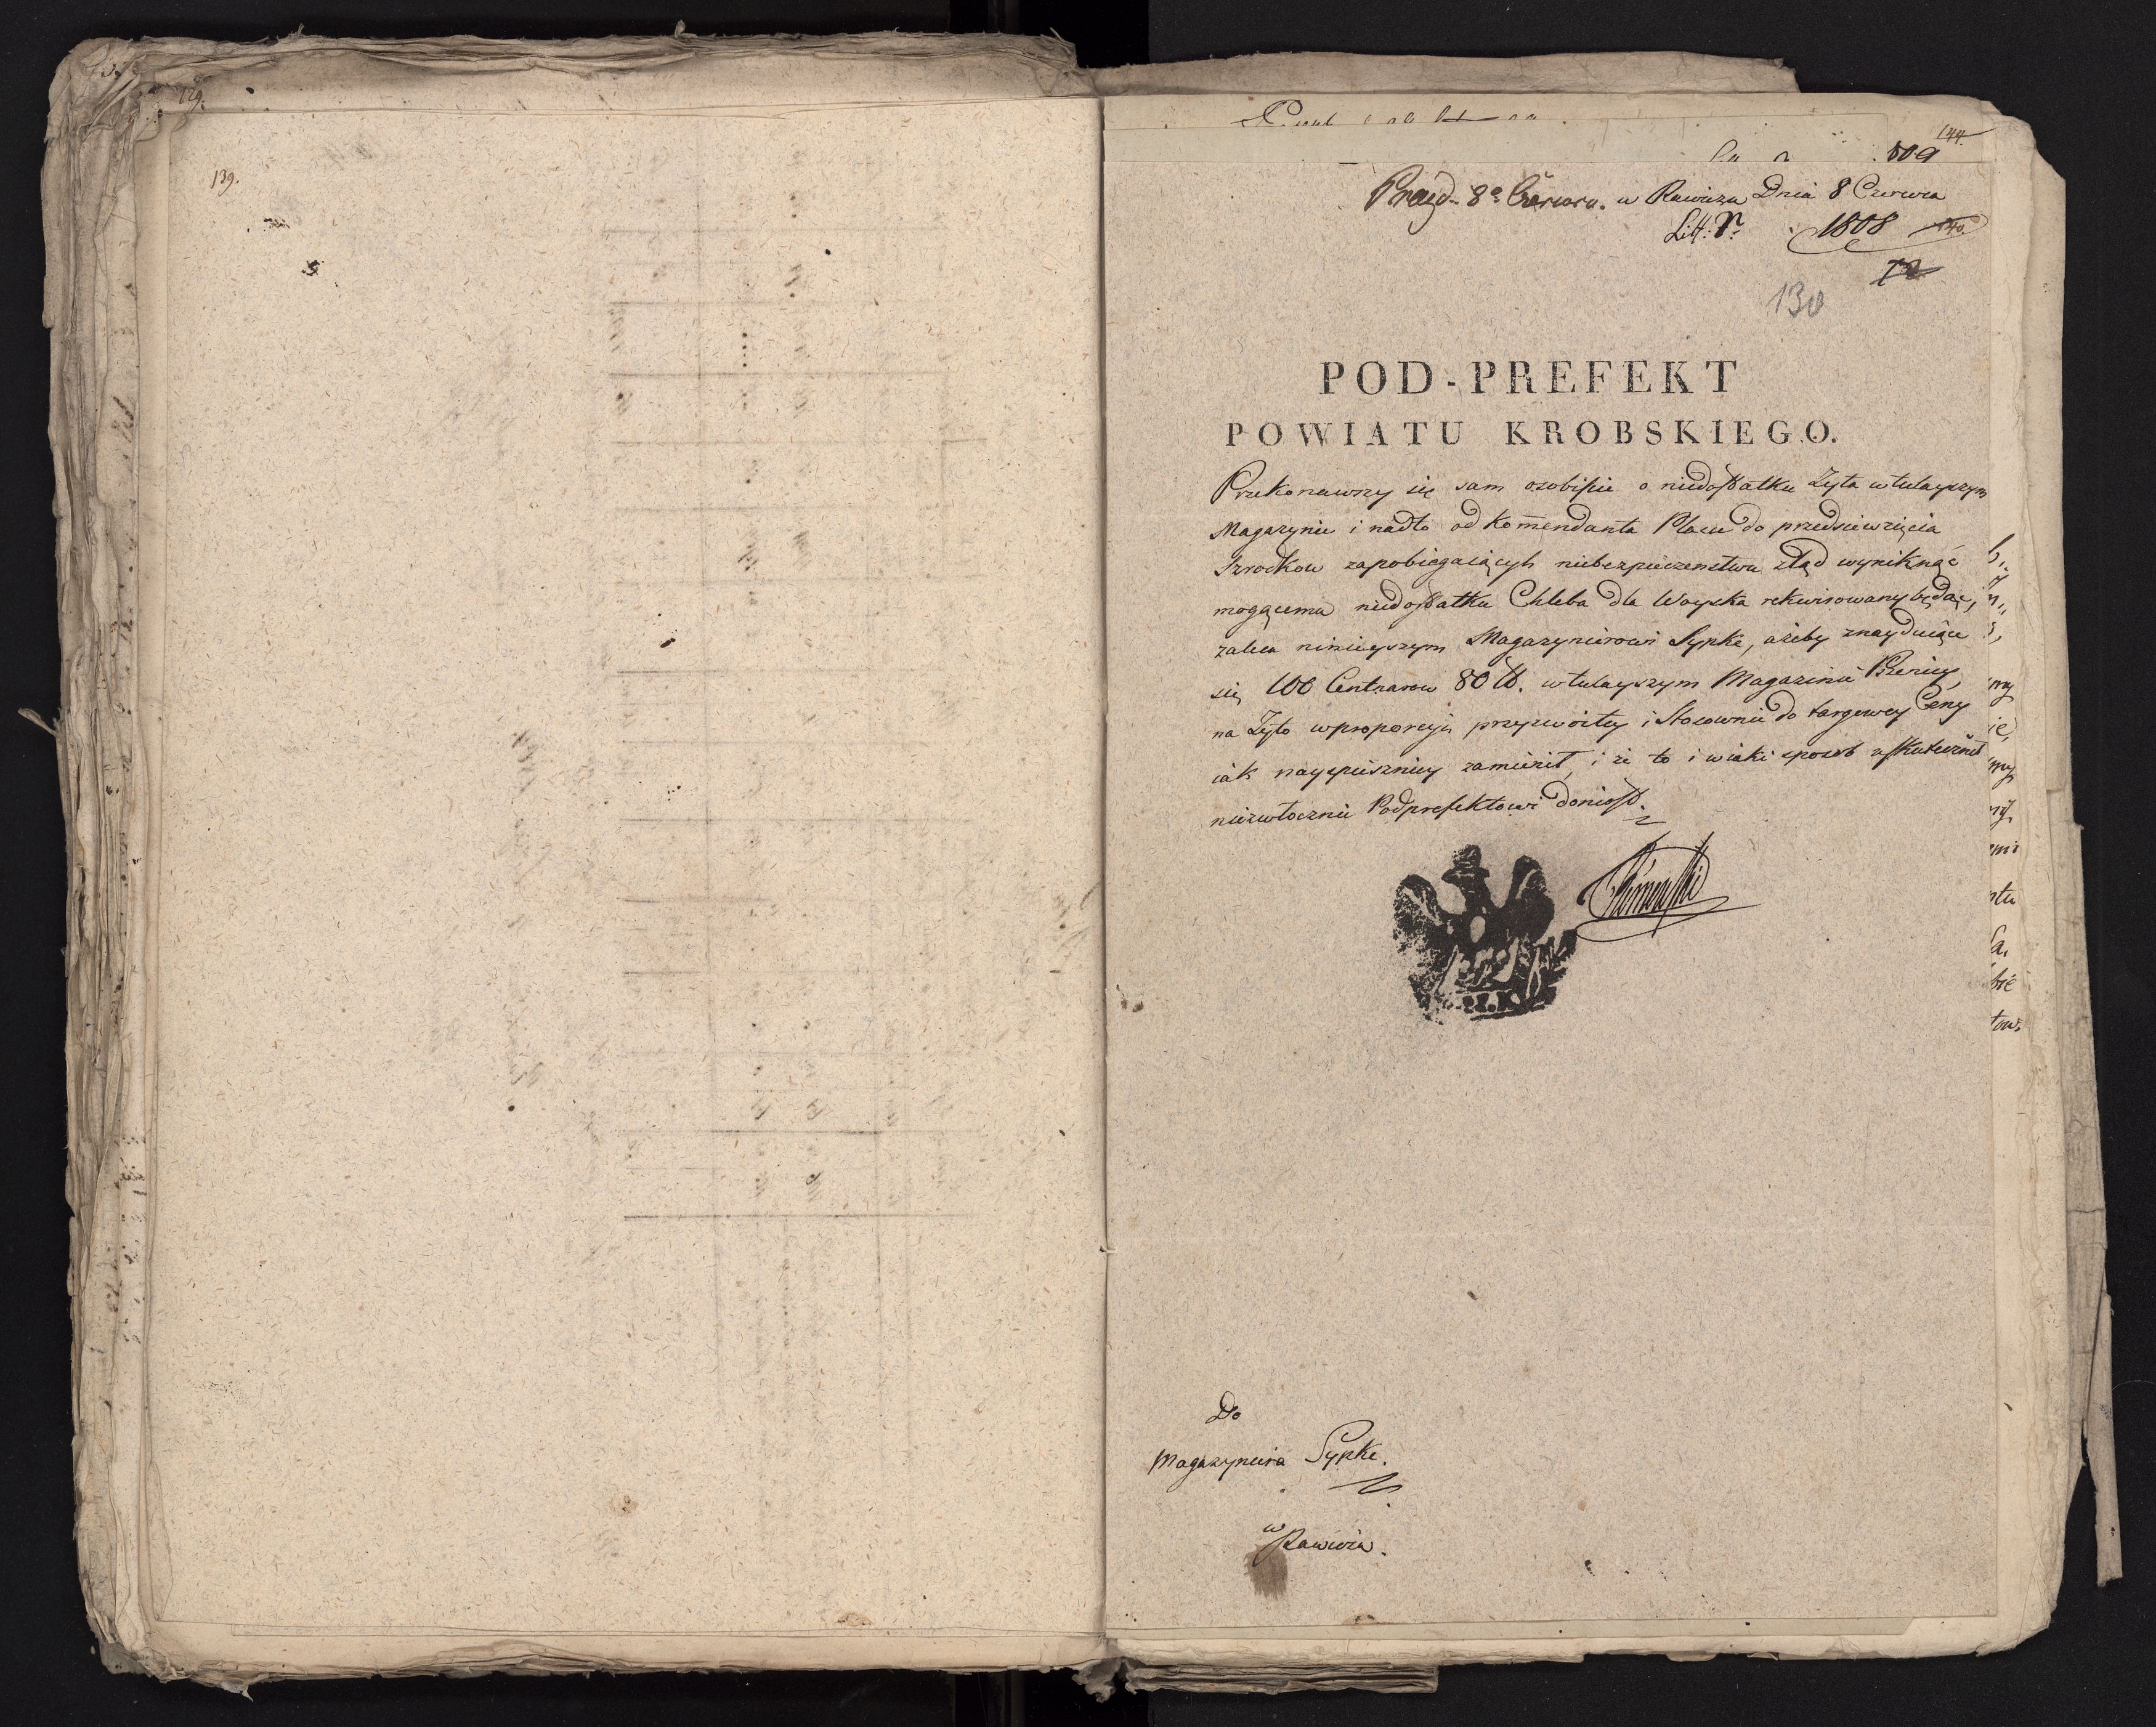 129.
139.
144.
Praes. 8ª Czerwca. w Rawiczu Dnia 8 Czerwca
Litt: N: 1808
140.
72
130
POD-PREFEKT
POWIATU KROBSKIEGO.
Przekonawszy się sam osobiście o niedostatku Zyta w tutayszym
Magazynie i nadto od Kom̄endanta Placu do przedsiewzięcia
Szrodkow zapobiegaiących niebezpieczenstwu ztąd wyniknąć
mogącemu niedostatku Chleba dla Woyska rekwirowany będąc,
zaleca ninieyszym Magazynierowi Sypke, ażeby znayduiące
się 100 Centnarow 80 lb. w tutayszym Magazinie Pszenicy,
na Zyto w proporcyi przyzwoitey i Stosownie do targowey Ceny
iak nayspieszniey zamienił, i że to i w iaki sposob uskutecznił
niezwłocznie Podprefektowi doniosł.
P.P.K.
Do
Magazyniera Sypke.
w Rawiczu.